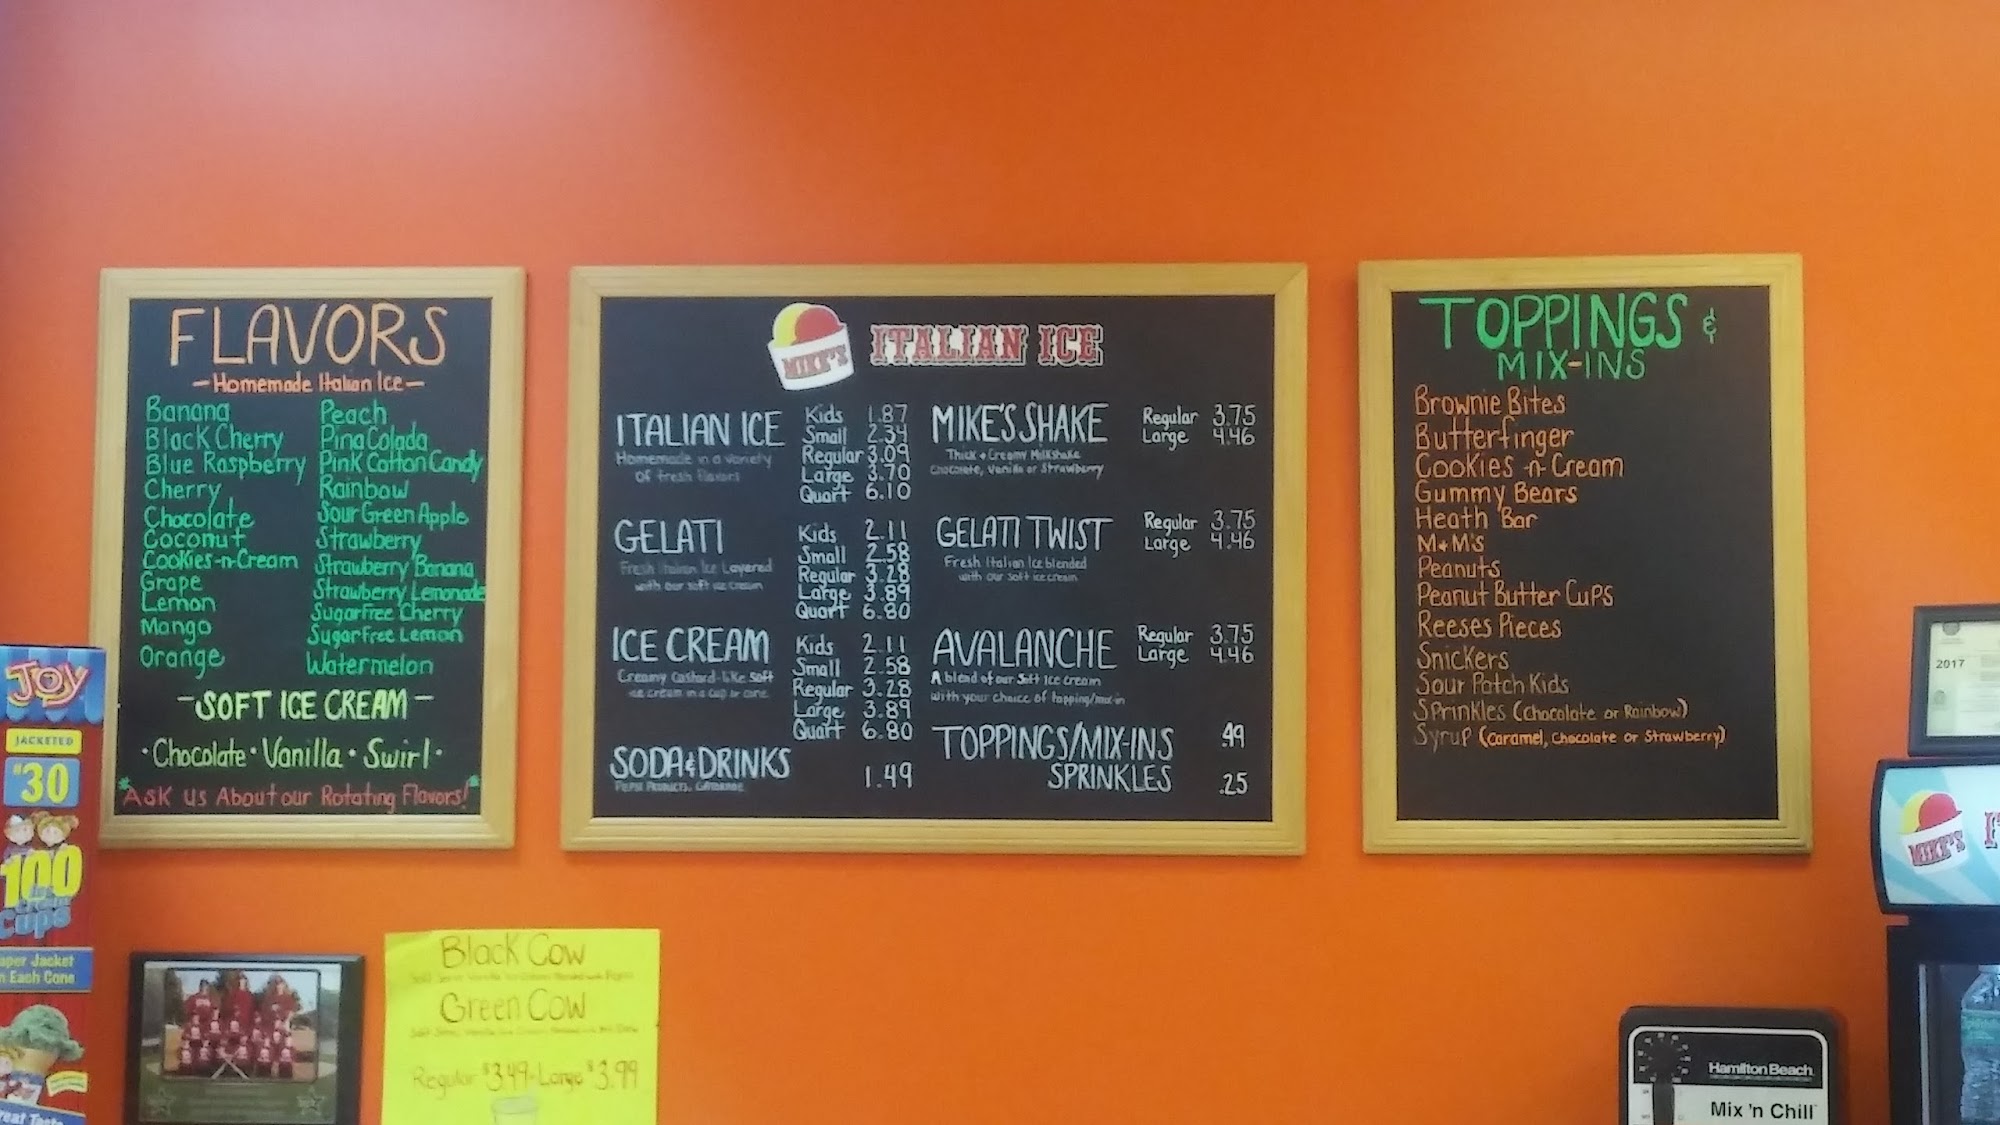 FLAVORS
-Homemade Italian Ice-
Banana
Black Cherry
Blue Raspberry
Cherry
Chocolate
Coconut
Cookies-n-Cream
Grape
Lemon
Mango
Orange
Peach
Pina Colada
Pink Cotton Candy
Rainbow
Sour Green Apple
Strawberry
Strawberry Banana
Strawberry Lemonade
Sugar Free Cherry
Sugar Free Lemon
Watermelon
-SOFT ICE CREAM-
·Chocolate·Vanilla·Swirl·
*Ask Us About our Rotating Flavors!*
MIKE'S ITALIAN ICE
ITALIAN ICE
Homemade in a variety
of fresh flavors
Kids 1.87
Small 2.34
Regular 3.09
Large 3.70
Quart 6.10
GELATI
Fresh Italian Ice Layered
with our soft ice cream
Kids 2.11
Small 2.58
Regular 3.28
Large 3.89
Quart 6.80
ICE CREAM
Creamy Custard-like soft
ice cream in a cup or cone
Kids 2.11
Small 2.58
Regular 3.28
Large 3.89
Quart 6.80
SODA & DRINKS 1.49
Pepsi Products, Gatorade
MIKE'S SHAKE
Thick + Creamy Milkshake
Chocolate, Vanilla or Strawberry
Regular 3.75
Large 4.46
GELATI TWIST
Fresh Italian Ice blended
with our soft ice cream
Regular 3.75
Large 4.46
AVALANCHE
A blend of our Soft Ice cream
with your choice of topping/mix-in
Regular 3.75
Large 4.46
TOPPINGS/MIX-INS .49
SPRINKLES .25
TOPPINGS &
MIX-INS
Brownie Bites
Butterfinger
Cookies -n- Cream
Gummy Bears
Heath Bar
M&M's
Peanuts
Peanut Butter Cups
Reeses Pieces
Snickers
Sour Patch Kids
Sprinkles (Chocolate or Rainbow)
Syrup (Caramel, Chocolate or Strawberry)
JOY
JACKETED
#30
100
Cups
Jacket
Each Cone
Black Cow
Green Cow
Regular $3.49 - Large $3.99
2017
MIKE'S
Hamilton Beach
Mix 'n Chill